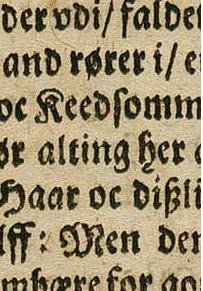 der vdi/ falde
and rører i/ e
oc Keedsomm
ør alting her
Haar oc dißli
lff: Men den
mbære for go